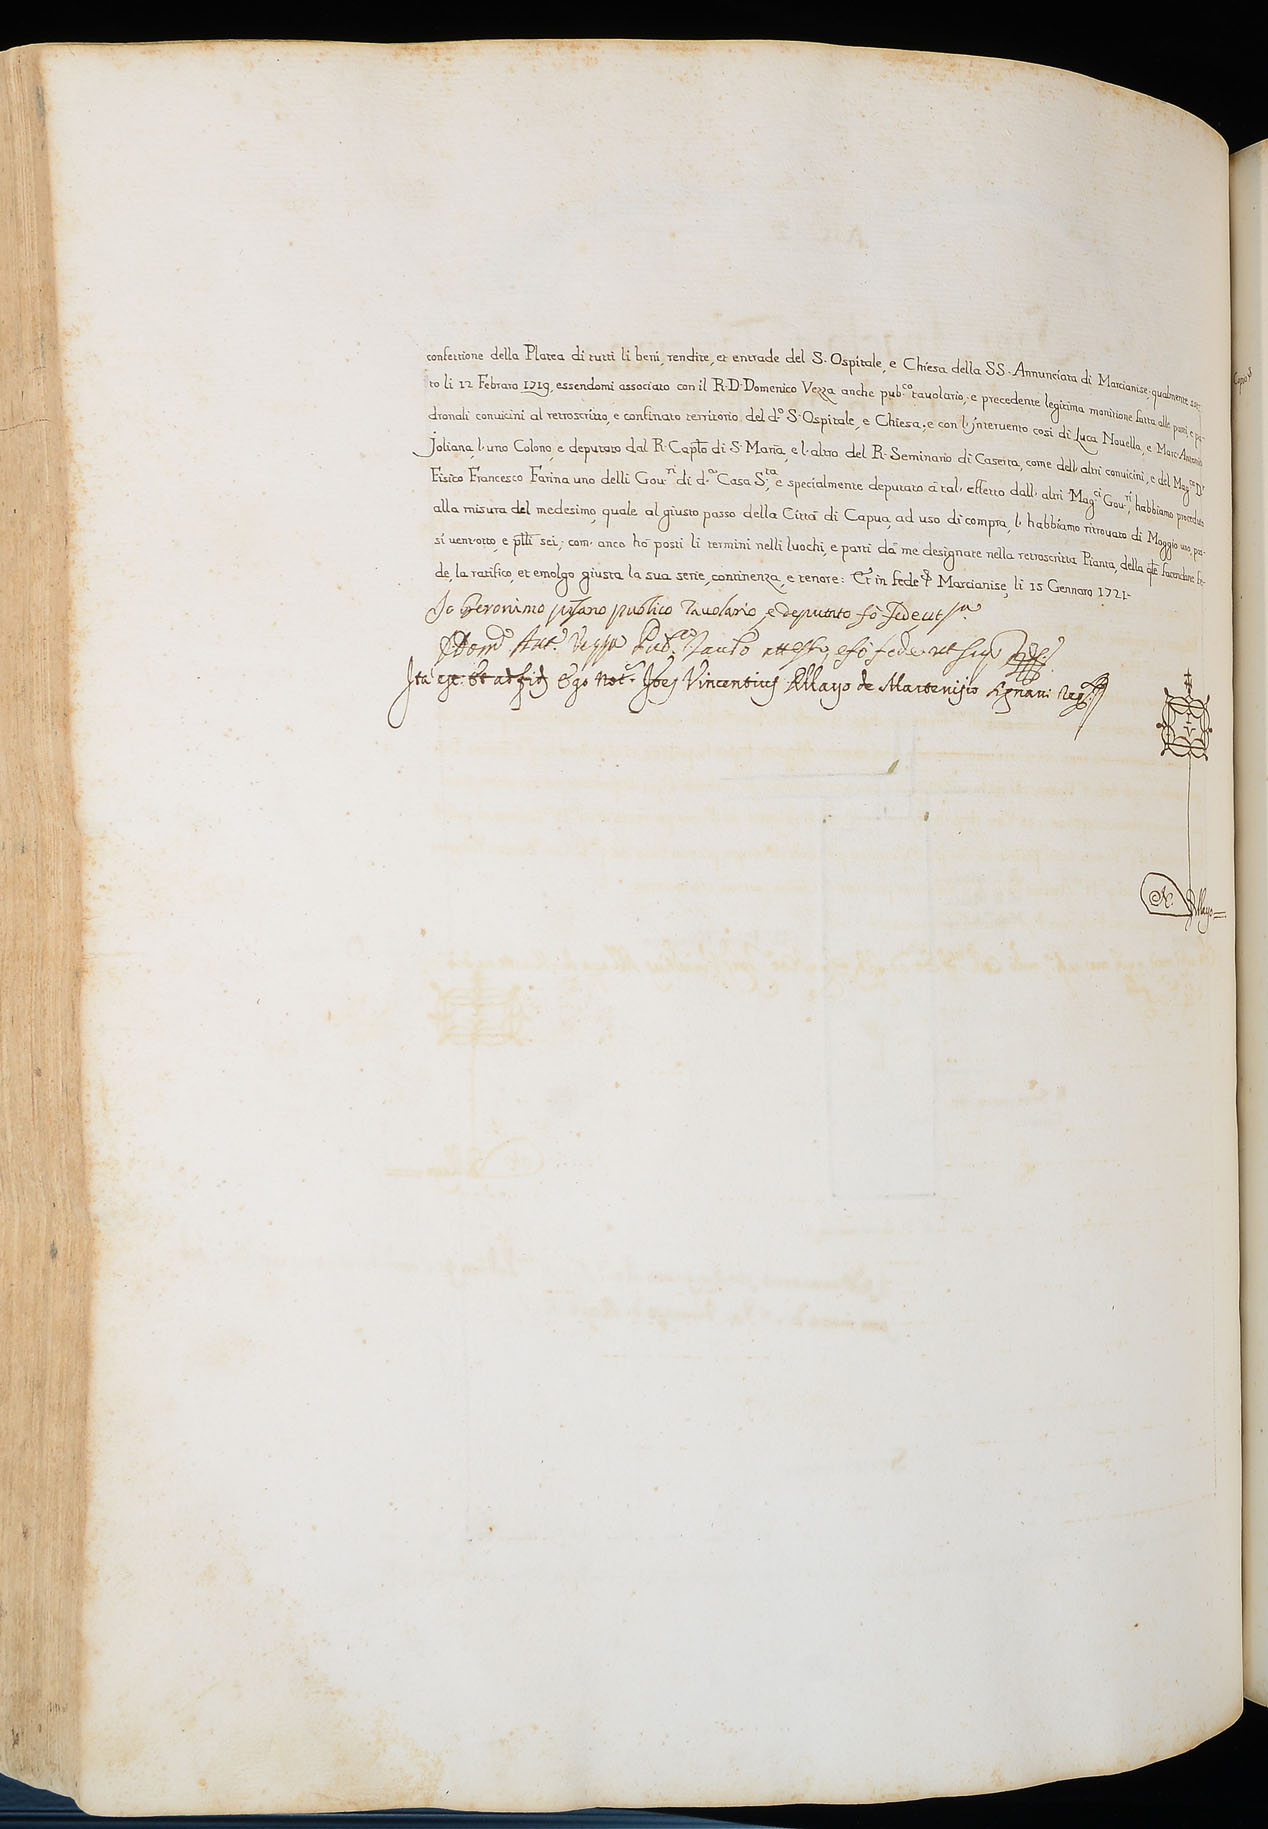 confettione della Platea di tutti li beni, rendite, et entrade del S. Ospitale, e Chiesa della SS. Annunciata di Marcianise, qualmente sot-
to li 12 Febraro 1719, essendomi associato con il R. D. Domenico Vezza anche pub.co tauolario, e precedente legitima monitione fatta alle parti, e pa-
dronali conuicini al retroscritto, e confinato territorio del d.o S. Ospitale, e Chiesa; e con l'interuento così di Luca Nouella, e Marc'Antonio
Joliana l'uno Colono, e deputato dal R. Captto di S. Maria, e l'altro del R. Seminario di Caserta, come dell'altri conuicini, e del Mag.co Dr
Fisico Francesco Farina uno delli Gou.ri di d.a Casa S.ta, e specialmente deputato à tal' effetto dall'altri Mag.ci Gou.ri, habbiamo proceduto
alla misura del medesimo, quale al giusto passo della Città di Capua, ad uso di compra, l'habbiamo ritrouato di Moggio uno, pas-
si uent'otto, e pltti sei; com' anco hò posti li termini nelli luochi, e parti dà me designate nella retroscritta Pianta, della qle facendone fe-
de, la ratifico, et emolgo giusta la sua serie, continenza, e tenore: Et in fede &c. Marcianise, li 15 Gennaro 1721.
Io Geronimo pisano publico Tauolario, e deputato fò fede ut s.a
D. Dom.co Ant.o Vezza Pub.co Taulo attesto, e fò fede ut sup.a
Ita est et ad fid. Ego Not.s Joēs Vincentius Mayo de Martenisio signaui rog.s
N. Mayo
Cappo S